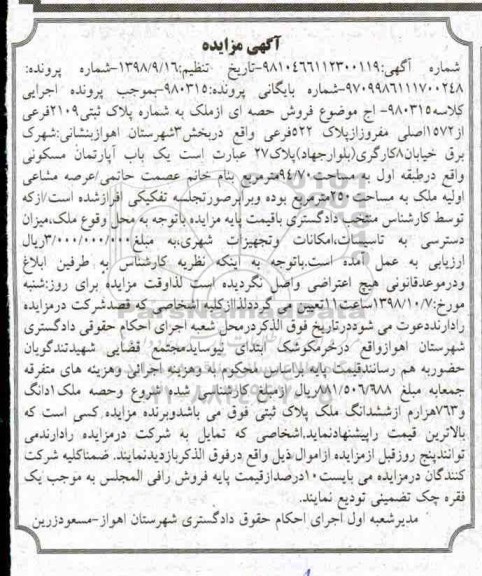 آگهی مزایده
شماره آگهی:۹۸۱۰۴۶۶۱۱۲۳۰۰۱۱۹-تاریخ تنظیم:۱۳۹۸/۹/۱۶-شماره پرونده:
۹۷۰۹۹۸۶۱۱۱۷۰۰۲۴۸-شماره بایگانی پرونده:۹۸۰۳۱۵-بموجب پرونده اجرایی
کلاسه۹۸۰۳۱۵- اج موضوع فروش حصه ای ازملک به شماره پلاک ثبتی۲۱۰۹فرعی
از۱۵۷۲اصلی مفروزازپلاک ۵۲۲فرعی واقع دربخش۳شهرستان اهوازبنشانی:شهرک
برق خیابان۸کارگری(بلوارجهاد)پلاک۲۷ عبارت است یک باب آپارتمان مسکونی
واقع درطبقه اول به مساحت۹۴/۷۰مترمربع بنام خانم عصمت حاتمی/عرصه مشاعی
اولیه ملک به مساحت۲۵۰مترمربع بوده وبرابرصورتجلسه تفکیکی افرازشده است/ازکه
توسط کارشناس منتخب دادگستری باقیمت پایه مزایده باتوجه به محل وقوع ملک،میزان
دسترسی به تاسیسات،امکانات وتجهیزات شهری،به مبلغ۳/۰۰۰/۰۰۰/۰۰۰ریال
ارزیابی به عمل آمده است.باتوجه به اینکه نظریه کارشناس به طرفین ابلاغ
ودرموعدقانونی هیچ اعتراضی واصل نگردیده است لذاوقت مزایده برای روز:شنبه
مورخ:۱۳۹۸/۱۰/۷ساعت۱۱تعیین می گرددلذاازکلیه اشخاصی که قصدشرکت درمزایده
رادارنددعوت می شوددرتاریخ فوق الذکردرمحل شعبه اجرای احکام حقوقی دادگستری
شهرستان اهوازواقع درخرمکوشک ابتدای نیوسایدمجتمع قضایی شهیدتندگویان
حضوربه هم رسانندقیمت پایه براساس محکوم به وهزینه اجرائی وهزینه های متفرقه
جمعابه مبلغ ۸۸۱/۵۰۶/۶۸۸ریال ازمبلغ کارشناسی شده شروع وحصه ملک۱دانگ
و۷۶۳هزارم ازششدانگ ملک پلاک ثبتی فوق می باشدوبرنده مزایده کسی است که
بالاترین قیمت راپیشنهادنماید.اشخاصی که تمایل به شرکت درمزایده رادارندمی
توانندپنج روزقبل ازمزایده ازاموال ذیل واقع درفوق الذکربازدیدنمایند. ضمناکلیه شرکت
کنندگان درمزایده می بایست۱۰درصدازقیمت پایه فروش رافی المجلس به موجب یک
فقره چک تضمینی تودیع نمایند.
مدیرشعبه اول اجرای احکام حقوق دادگستری شهرستان اهواز-مسعودزرین